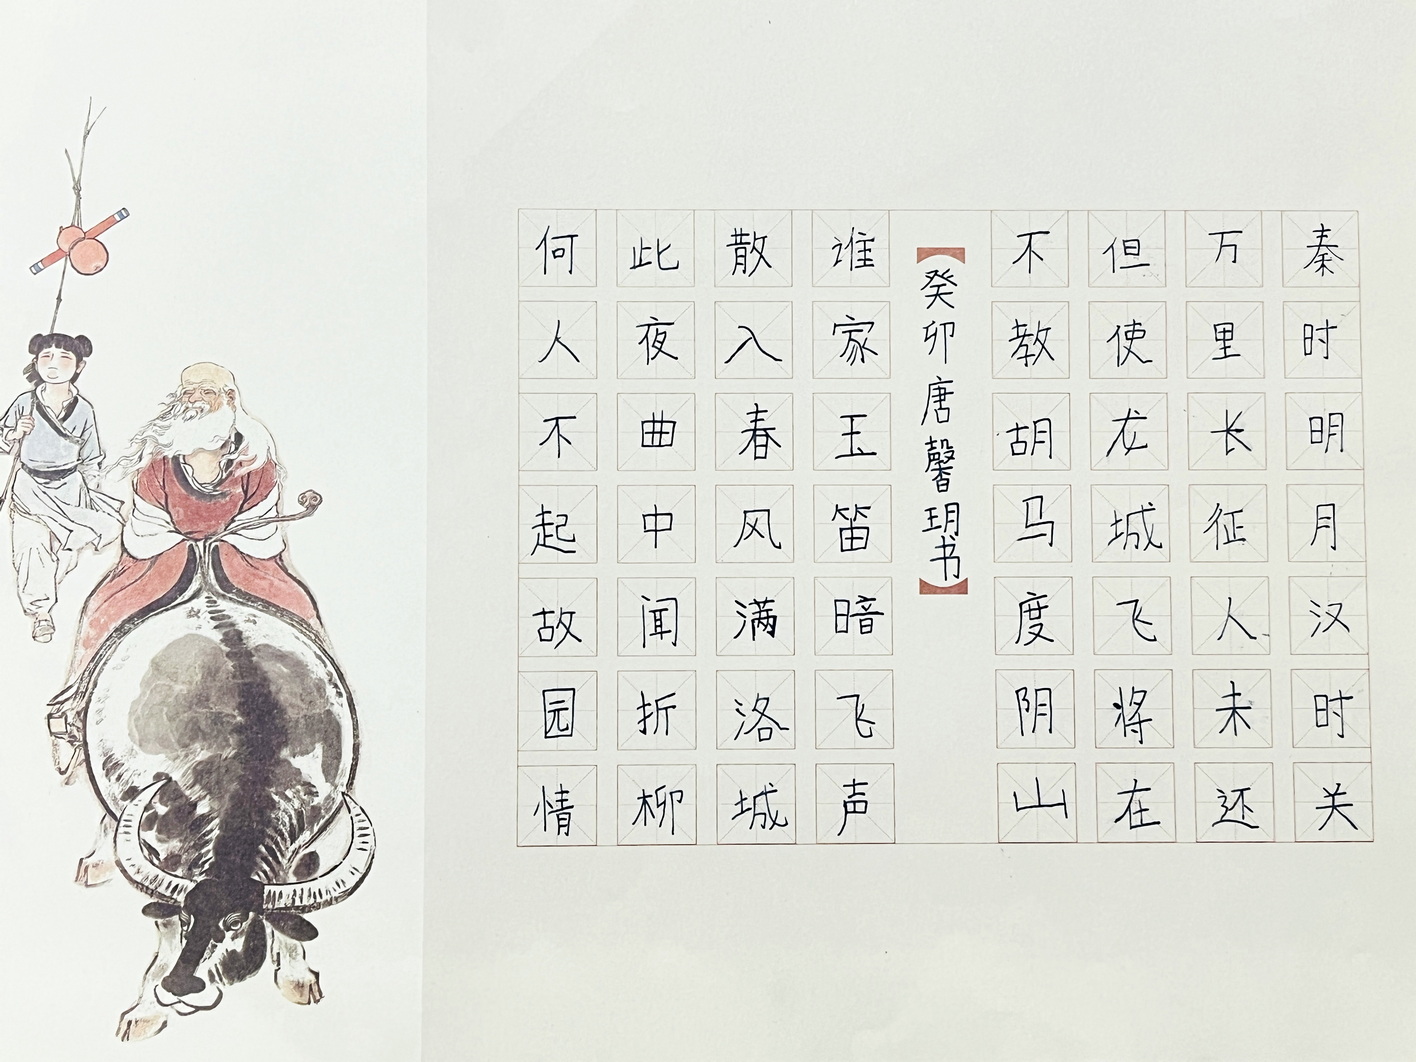 秦时明月汉时关
万里长征人未还
但使龙城飞将在
不教胡马度阴山
癸卯唐馨玥书
谁家玉笛暗飞声
散入春风满洛城
此夜曲中闻折柳
何人不起故园情